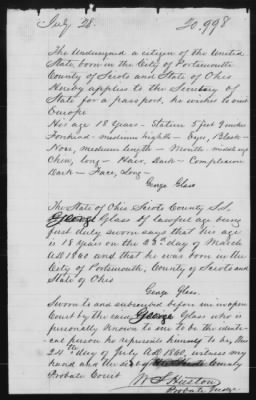 July 28. 20.998
The Undersigned a citizen of the United
State, born in the City of Portsmouth
County of Scioto and State of Ohio
Hereby applies to the Secretary of
State for a passport, he wishes to visit
Europe
His age 18 Years - Stature 5 feet 9 inches
Forehead - medium highth - Eyes, Black -
Nose, medium length - Mouth, middling
Chin, long - Hair, Dark - Complexion
Dark - Face, Long -
George Glass
The State of Ohio Scioto County S.S.
George Glass of lawful age being
first duly sworn says that his age
is 18 years on the 23d day of March
AD 1860 and that he was born in the
City of Portsmouth, County of Scioto and
State of Ohio
George Glass.
Sworn to and subscribed before in open
Court by the said George Glass who is
personally known to me to be the identi-
cal person he represents himself to be, this
24th day of July AD 1860, witness my
hand and the County
Probate Court
Huston
Probate Judge